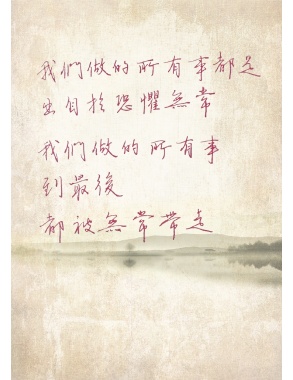 我們做的所有事都是
出自於恐懼無常
我們做的所有事
到最後
都被無常帶走